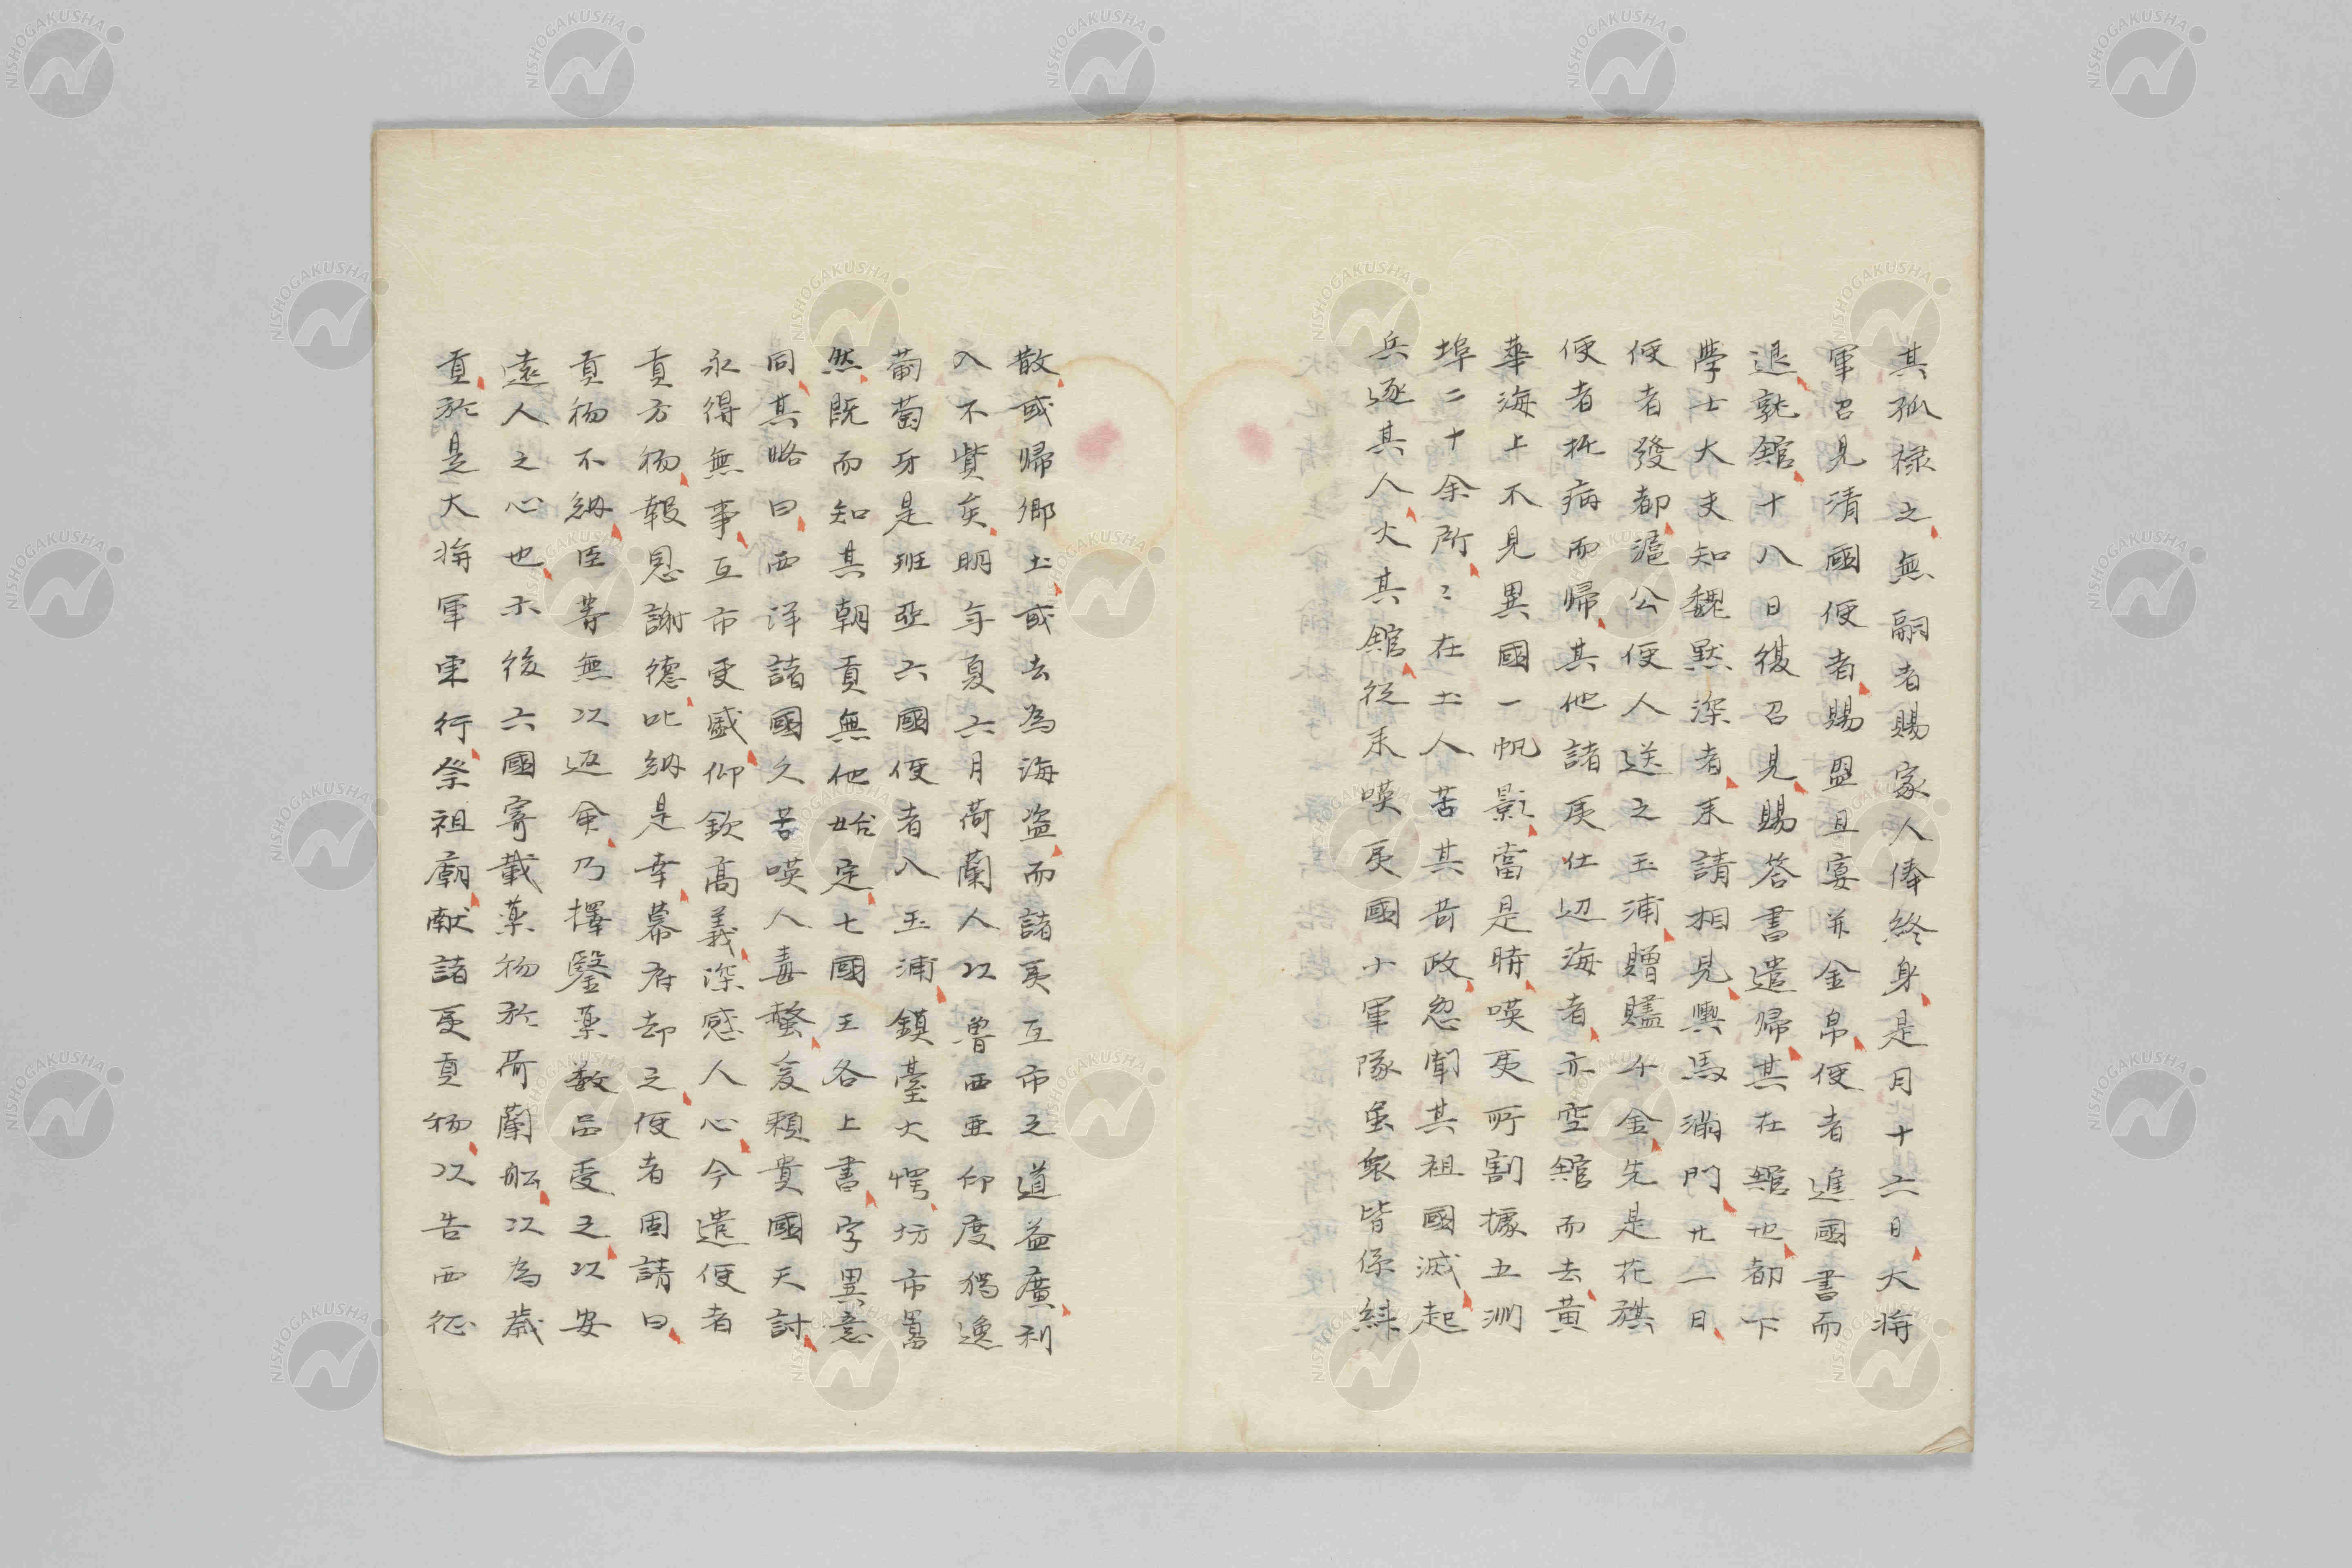 其孤禄之無嗣者賜家人俸終身是月十六日大将
軍召見清國使者賜盥且宴并金帛使者進國書而
退就館十八日復召見賜答書遣帰其在館也都下
學士大夫知魏黙深者来請相見輿馬満門廿一日
使者發都滬公使人送之玉浦贈贐千金先是花旗
使者托病而帰其他諸夷仕辺海者亦空館而去黄
華海上不見異國一帆影當是時暎夷所割據五洲
埠二十余所〻在土人苦其苛政忽聞其祖國滅起
兵逐其人火其館従来暎夷國小軍隊虽衆皆係練
散或帰郷土或去為海盗而諸夷互市之道益廣利
入不貲矣明年夏六月荷蘭人以魯西亜仰度獨逸
葡萄牙是班亜六國使者入玉浦鎮臺大愕坊市罵
然既而知其朝貢無他始定七國王各上書字異意
同其略曰西洋諸國久苦暎人毒螫爰頼貴國天討
永得無事互市更盛仰欽高義深感人心今遣使者
貢方物報恩謝德叱納是幸幕府却之使者固請曰
貢物不納臣等無以返命乃擇鑒薬数品受之以安
遠人之心也尓後六國寄載薬物於荷蘭舩以為歳
貢於是大将軍東行祭祖廟献諸夷貢物以告西征
NISHOGAKUSHA